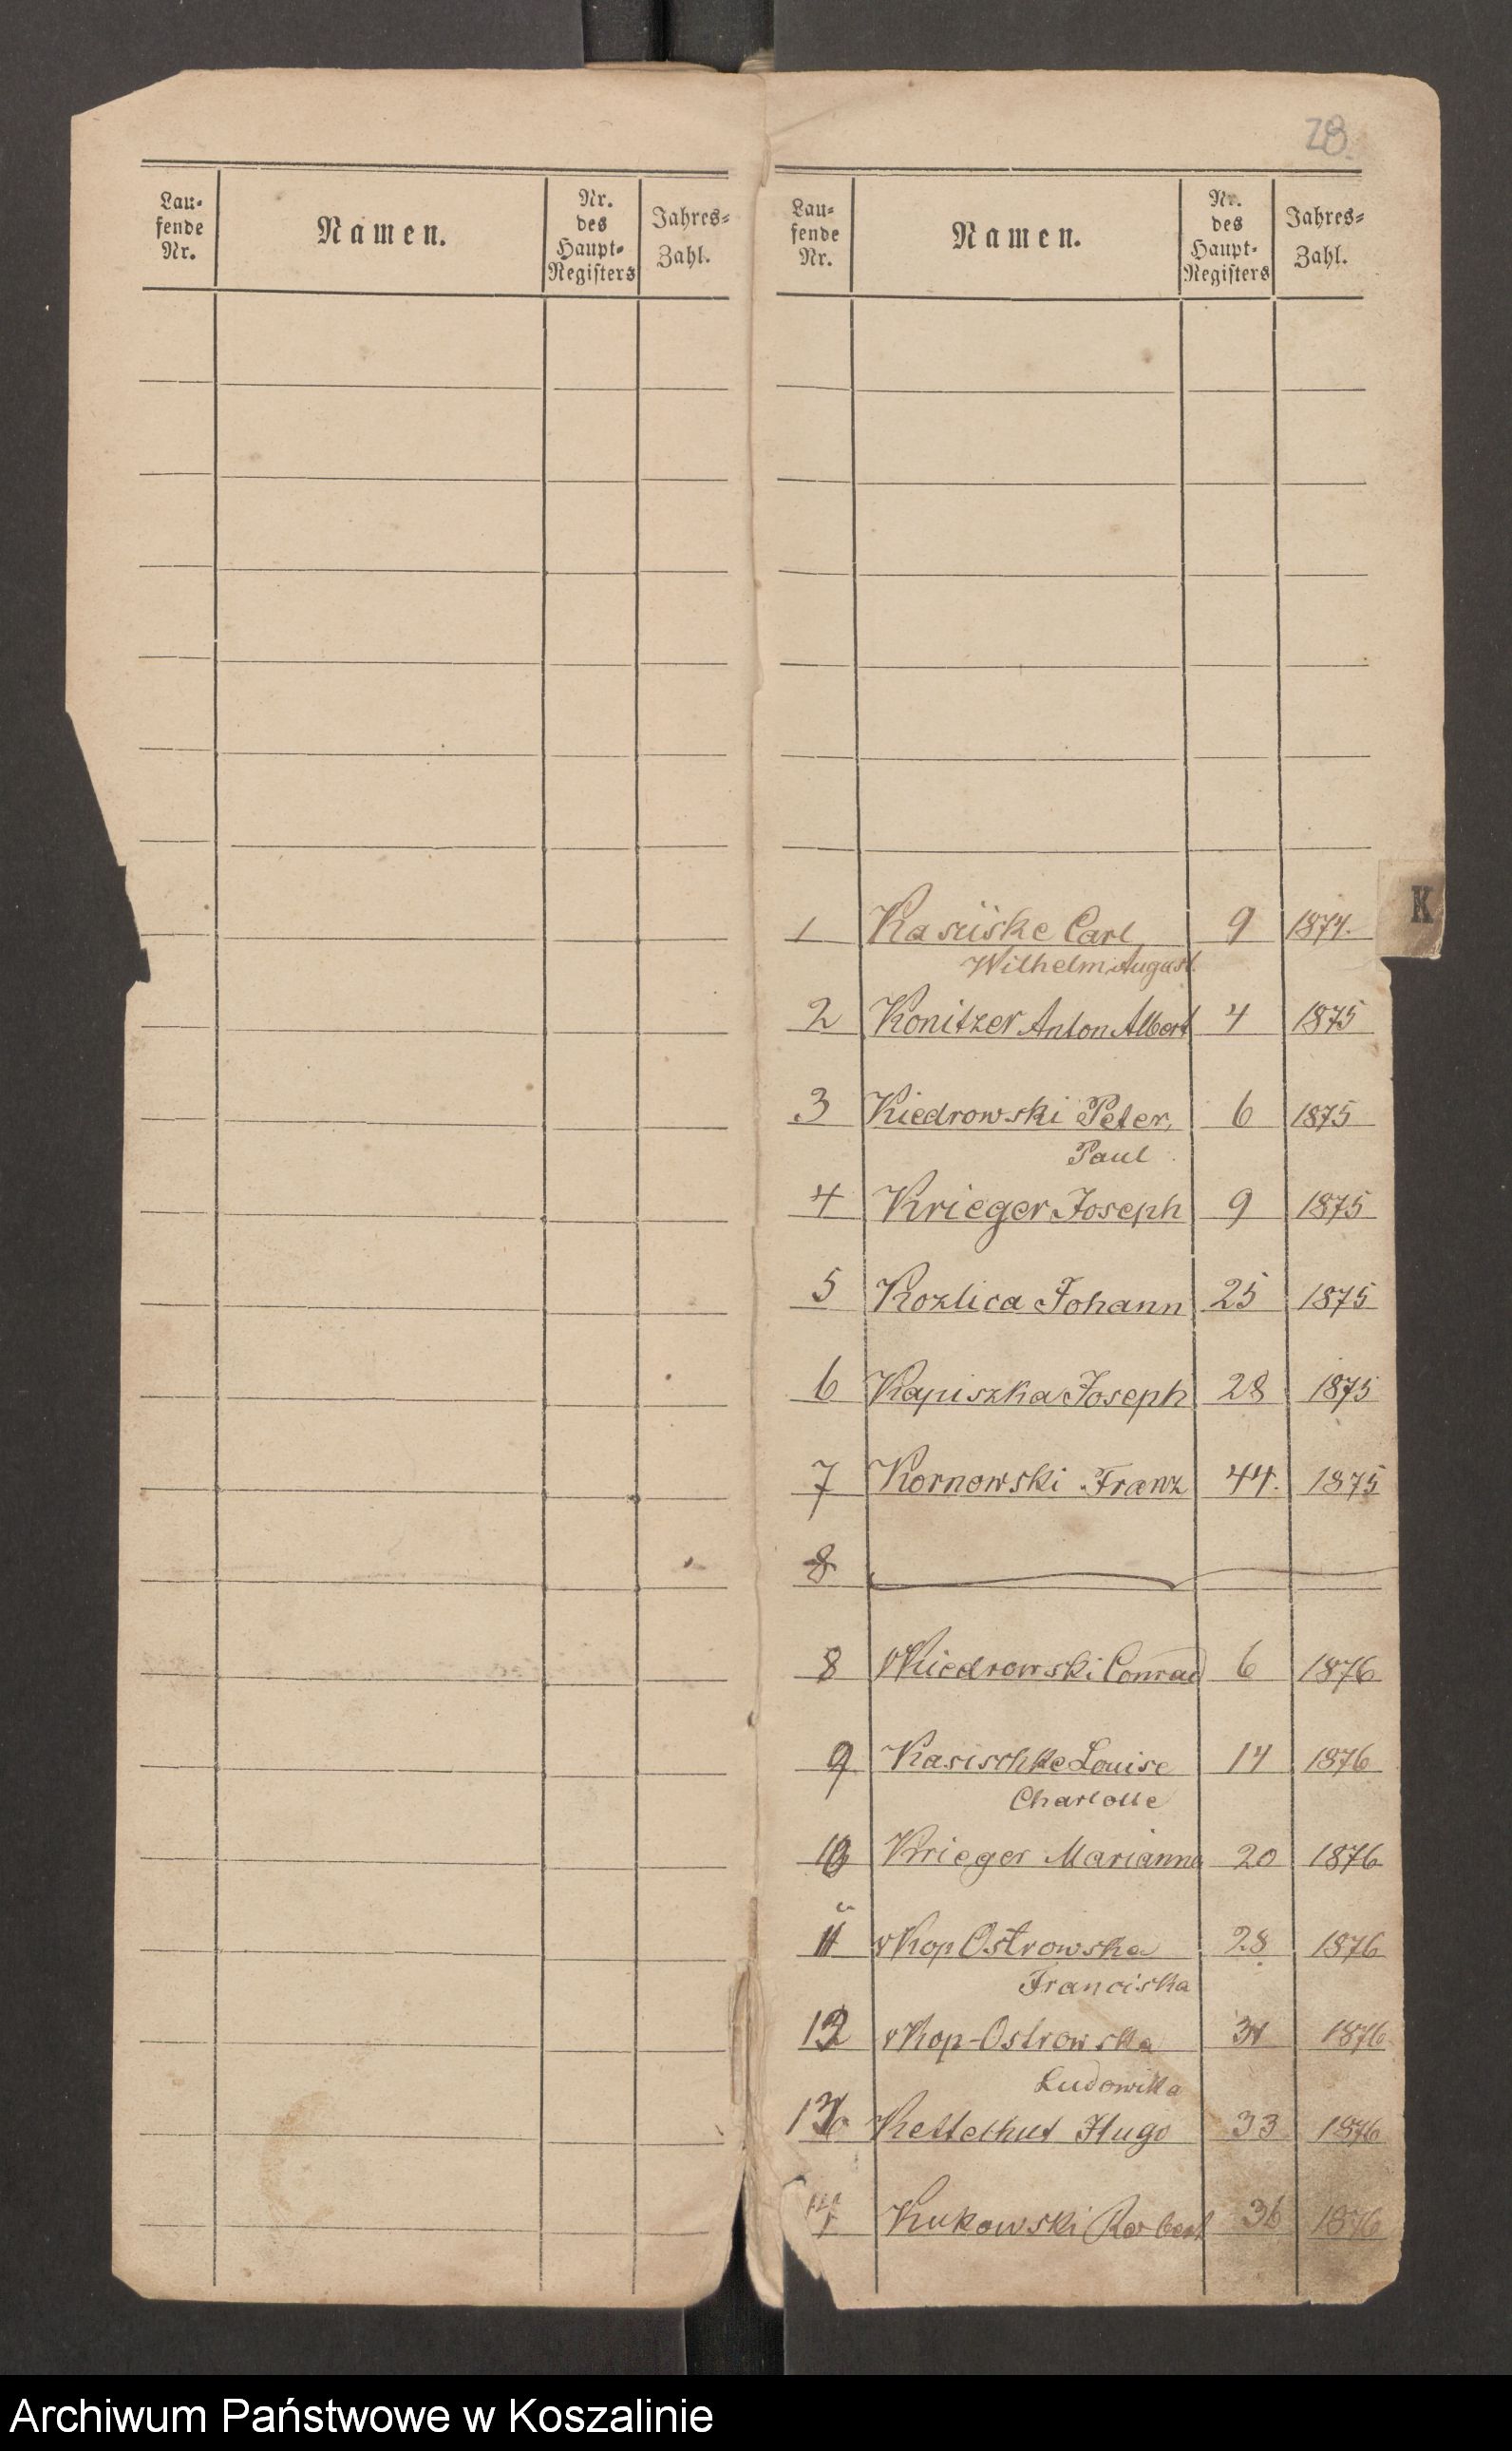 28.
Lau-
fende
Nr.
Namen.
Nr.
des
Haupt-
Registers
Jahres-
Zahl.
Lau-
fende
Nr.
Namen.
Nr.
des
Haupt-
Registers
Jahres-
Zahl.
K
1 Carl 9 1874.
Wilhelm August.
2 Konitzer Anton Albert 4 1875
3 Kiedrowski Peter, 6 1875
Paul
4 Krieger Joseph 9 1875
5 Kozlica Johann 25 1875
6 Kapiszka Joseph 28 1875
7 Kornowski Franz 44. 1875
8
8 v Kiedrowski Conrad 6 1876
9 Kasischke Louise 14 1876
Charlotte
10 Krieger Marianna 20 1876
11 v Kop Ostrowska 28 1876
Franciska
12 v Kop-Ostrowska 1876
Ludowika
13 Kettelhut Hugo 33 1876
Kukowski Robert 36 1876
Archiwum Państwowe w Koszalinie